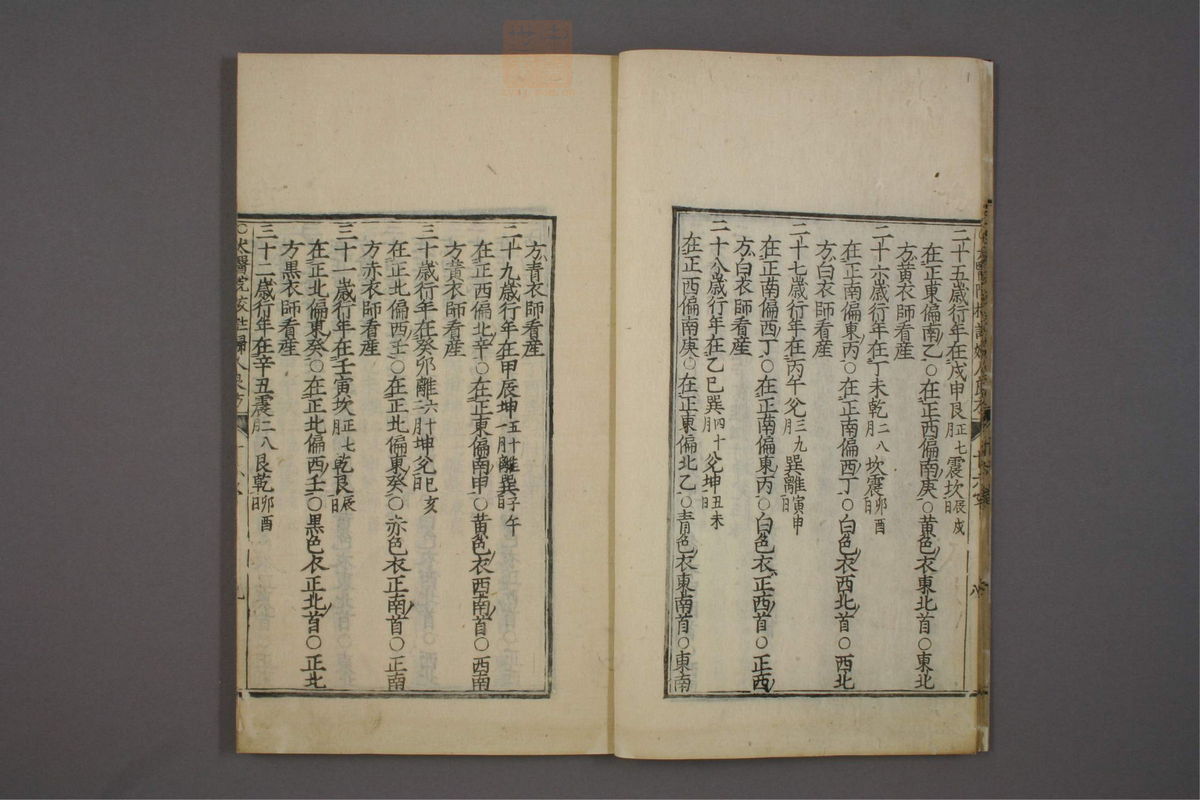 二十五歲行年在戊申艮正七月震坎辰戌日
在正東偏南乙○在正西偏南庚○黄色衣東北首○東北
方黄衣師看産
二十六歲行年在丁未乾二八月坎震卯酉日
在正南偏東丙○在正南偏西丁○白色衣西北首○西北
方白衣師看産
二十七歲行年在丙午兊三九月巽離寅申日
在正南偏西丁○在正南偏東丙○白色衣正西首○正西
方白衣師看産
二十八歲行年在乙巳巽四十月兊坤丑未日
在正西偏南庚○在正東偏北乙○青色衣東南首○東南
方青衣師看産
二十九歲行年在甲辰坤五十一月離巽子午日
在正西偏北辛○在正東偏南申○黄色衣西南首○西南
方黄衣師看産
三十歲行年在癸卯離六十二月坤兊巳亥日
在正北偏西壬○在正北偏東癸○赤色衣正南首○正南
方赤衣師看産
三十一歲行年在壬寅坎正七月乾艮辰日
在正北偏東癸○在正北偏西壬○黒色衣正北首○正北
方黒衣師看産
三十二歲行年在辛丑震二八月艮乾卯酉日